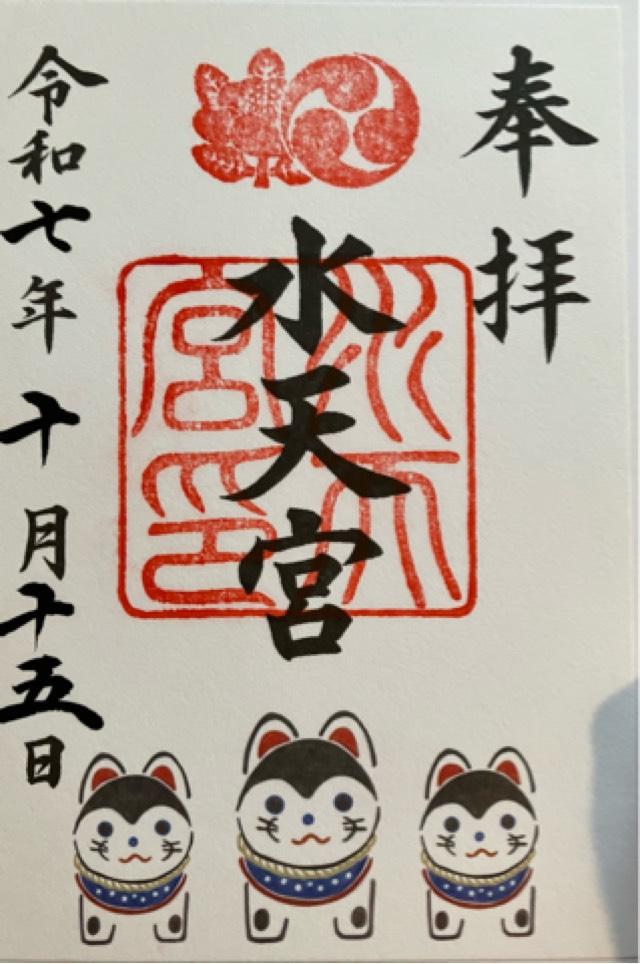 奉拝
水天宮
水天宮印
令和七年十月十五日